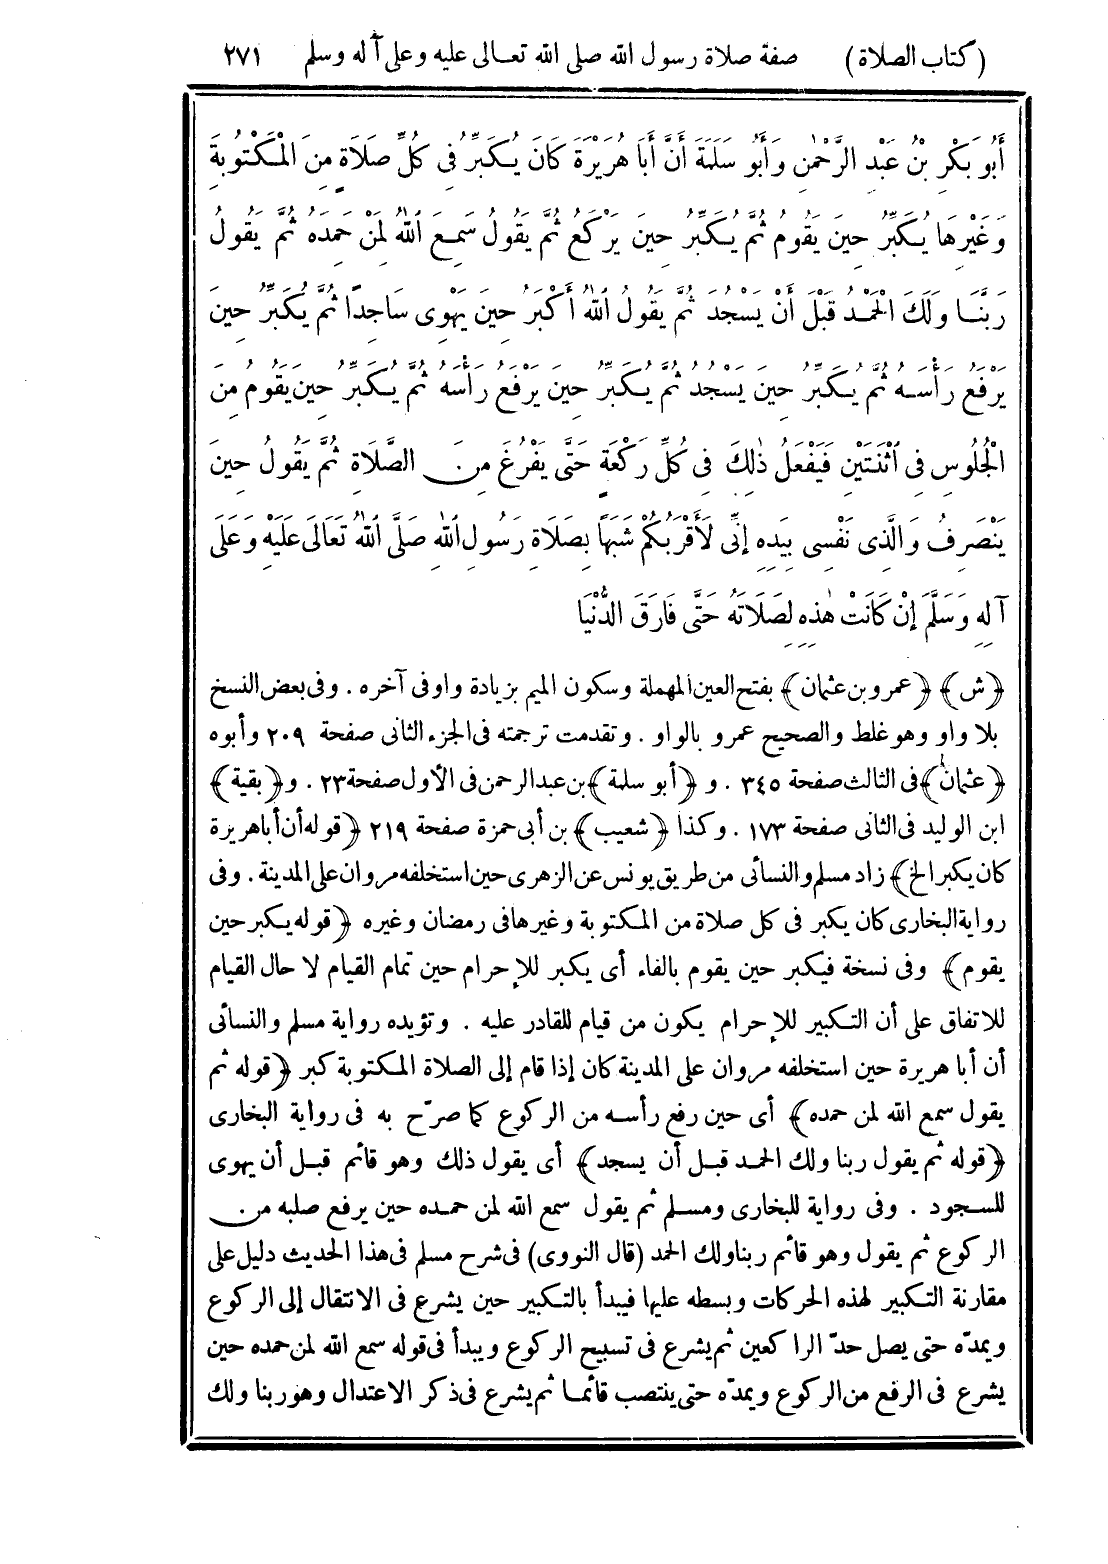 (كتاب الصلاة) صفة صلاة رسول الله صلى الله تعالى عليه وعلى آله وسلم ٢٧١
أَبُو بَكْرِ بْنُ عَبْدِ الرَّحْمٰنِ وَأَبُو سَلَمَةَ أَنَّ أَبَا هُرَيْرَةَ كَانَ يُكَبِّرُ فِى كُلِّ صَلَاةٍ مِنَ الْمَكْتُوبَةِ
وَغَيْرِهَا يُكَبِّرُ حِينَ يَقُومُ ثُمَّ يُكَبِّرُ حِينَ يَرْكَعُ ثُمَّ يَقُولُ سَمِعَ اللهُ لِمَنْ حَمِدَهُ ثُمَّ يَقُولُ
رَبَّنَا وَلَكَ الْحَمْدُ قَبْلَ أَنْ يَسْجُدَ ثُمَّ يَقُولُ اللهُ أَكْبَرُ حِينَ يَهْوِى سَاجِدًا ثُمَّ يُكَبِّرُ حِينَ
يَرْفَعُ رَأْسَهُ ثُمَّ يُكَبِّرُ حِينَ يَسْجُدُ ثُمَّ يُكَبِّرُ حِينَ يَرْفَعُ رَأْسَهُ ثُمَّ يُكَبِّرُ حِينَ يَقُومُ مِنَ
الْجُلُوسِ فِى اثْنَتَيْنِ فَيَفْعَلُ ذٰلِكَ فِى كُلِّ رَكْعَةٍ حَتَّى يَفْرُغَ مِنَ الصَّلَاةِ ثُمَّ يَقُولُ حِينَ
يَنْصَرِفُ وَالَّذِى نَفْسِى بِيَدِهِ إِنِّى لَأَقْرَبُكُمْ شَبَهًا بِصَلَاةِ رَسُولِ اللهِ صَلَّى اللهُ تَعَالَى عَلَيْهِ وَعَلَى
آلِهِ وَسَلَّمَ إِنْ كَانَتْ هٰذِهِ لَصَلَاتَهُ حَتَّى فَارَقَ الدُّنْيَا
﴿ش﴾ ﴿عمرو بن عثمان﴾ بفتح العين المهملة وسكون الميم بزيادة واو فى آخره . وفى بعض النسخ
بلا واو وهو غلط والصحيح عمرو بالواو . وتقدمت ترجمته فى الجزء الثانى صفحة ٢٠٩ وأبوه
﴿عثمان﴾ فى الثالث صفحة ٣٤٥ . و ﴿أبو سلمة﴾ بن عبد الرحمن فى الأول صفحة ٢٣ . و﴿بقية﴾
ابن الوليد فى الثانى صفحة ١٧٣ . وكذا ﴿شعيب﴾ بن أبى حمزة صفحة ٢١٩ ﴿قوله أن أبا هريرة
كان يكبر الخ﴾ زاد مسلم والنسائى من طريق يونس عن الزهرى حين استخلفه مروان على المدينة . وفى
رواية البخارى كان يكبر فى كل صلاة من المكتوبة وغيرها فى رمضان وغيره ﴿قوله يكبر حين
يقوم﴾ وفى نسخة فيكبر حين يقوم بالفاء أى يكبر للإحرام حين تمام القيام لا حال القيام
للاتفاق على أن التكبير للإحرام يكون من قيام للقادر عليه . وتؤيده رواية مسلم والنسائى
أن أبا هريرة حين استخلفه مروان على المدينة كان إذا قام إلى الصلاة المكتوبة كبر ﴿قوله ثم
يقول سمع الله لمن حمده﴾ أى حين رفع رأسه من الركوع كما صرّح به فى رواية البخارى
﴿قوله ثم يقول ربنا ولك الحمد قبل أن يسجد﴾ أى يقول ذلك وهو قائم قبل أن يهوى
للسجود . وفى رواية للبخارى ومسلم ثم يقول سمع الله لمن حمده حين يرفع صلبه من
الركوع ثم يقول وهو قائم ربنا ولك الحمد (قال النووى) فى شرح مسلم فى هذا الحديث دليل على
مقارنة التكبير لهذه الحركات وبسطه عليها فيبدأ بالتكبير حين يشرع فى الانتقال إلى الركوع
ويمدّه حتى يصل حدّ الراكعين ثم يشرع فى تسبيح الركوع ويبدأ فى قوله سمع الله لمن حمده حين
يشرع فى الرفع من الركوع ويمدّه حتى ينتصب قائما ثم يشرع فى ذكر الاعتدال وهو ربنا ولك